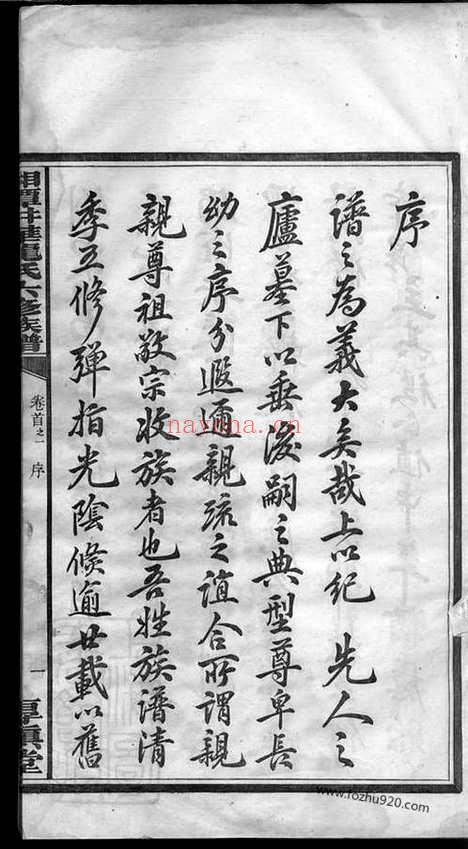 序
譜之為義大矣哉上以紀 先人之
廬墓下以垂後嗣之典型尊卑長
幼之序分遐邇親疏之誼合所謂親
親尊祖敬宗收族者也吾姓族譜清
季五修彈指光陰倏逾廿載以舊
湘潭井
氏六修族譜
卷首之一 序
一
堂
nayona.cn
www.fozhu920.com